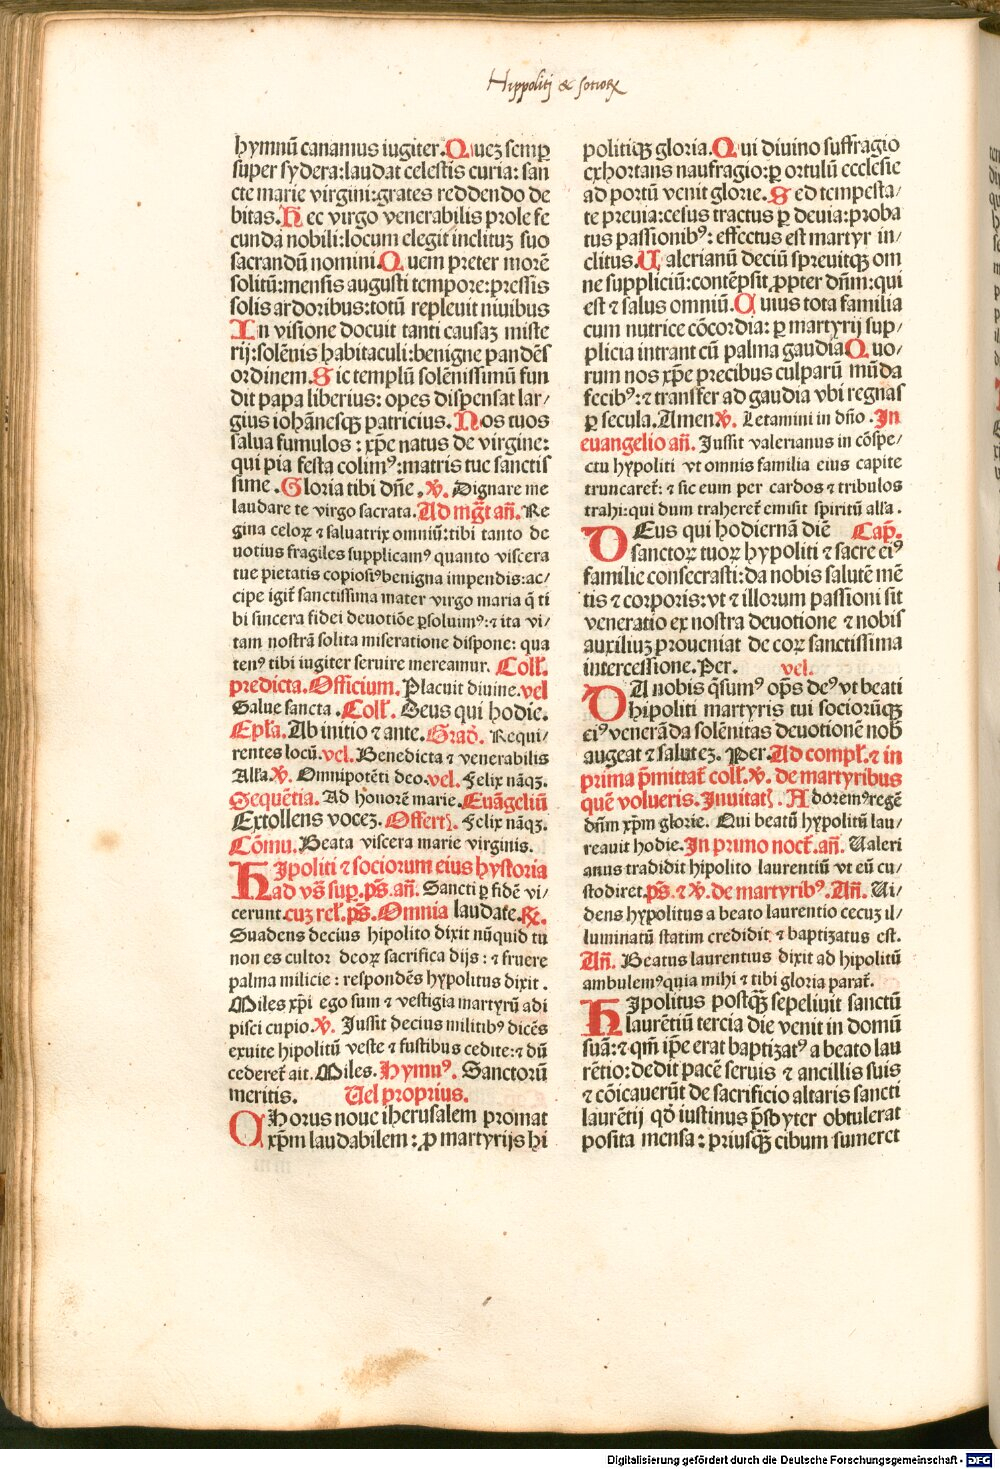 Hippolitj & socioꝝ
hymnū canamus iugiter. Quez semꝑ
super sydera: laudat celestis curia: san
cte marie virgini: grates reddendo de
bitas. Hec virgo venerabilis prole fe
cunda nobili: locum elegit inclituz suo
sacrandū nomini. Quem preter morē
solitū: mensis augusti tempore: pressis
solis ardoribus: totū repleuit niuibus
In visione docuit tanti causaz miste
rij: solēnis habitaculi: benigne pandēs
ordinem. Sic templū solēnissimū fun
dit papa liberius: opes dispensat lar/
gius iohānesqꝫ patricius. Nos tuos
salua famulos: xp̄e natus de virgine:
qui pia festa colimꝰ: matris tue sanctis
sime. Gloria tibi dn̄e. ℣. Dignare me
laudare te virgo sacrata. Ad mḡt an̄. Re
gina celoꝝ ⁊ saluatrix omniū: tibi tanto de
uotius fragiles supplicamꝰ quanto viscera
tue pietatis copiosiꝰ benigna impendis: ac/
cipe igit̄ sanctissima mater virgo maria q̄ ti
bi sincera fidei deuotiōe ꝑsoluimꝰ: ⁊ ita vi/
tam nostrā solita miseratione dispone: qua
tenꝰ tibi iugiter seruire mereamur. Coll̄.
predicta. Officium. Placuit diuine. vel
Salue sancta. Coll̄. Deus qui hodie.
Ep̄la. Ab initio ⁊ ante. Grad̄. Requi/
rentes locū. vel. Benedicta ⁊ venerabilis
All̄a. ℣. Omnipotēti deo. vel. Felix nāqꝫ.
Sequētia. Ad honorē marie. Euāgeliū
Extollens vocez. Offert̄. Felix nāqꝫ.
Cōmu. Beata viscera marie virginis.
Hipoliti ⁊ sociorum eius hystoria
ad vs̄ sup. ps̄. an̄. Sancti ꝑ fidē vi/
cerunt. cuz rel̄. ps̄. Omnia laudate. ℟.
Suadens decius hipolito dixit nūquid tu
non es cultor deoꝝ sacrifica dijs: ⁊ fruere
palma milicie: respondēs hypolitus dixit.
Miles xp̄i ego sum ⁊ vestigia martyrū adi
pisci cupio. ℣. Jussit decius militibꝰ dicēs
exuite hipolitū veste ⁊ fustibus cedite: ⁊ dū
cederet̄ ait. Miles. Hymnꝰ. Sanctorū
meritis. Vel proprius.
Chorus noue iherusalem promat
xp̄m laudabilem: ꝓ martyrijs hi
politiqꝫ gloria. Qui diuino suffragio
exhortans naufragio: ꝑ ortulū ecclesie
ad portū venit glorie. Sed tempesta/
te preuia: cesus tractus ꝑ deuia: proba
tus passionibꝰ: effectus est martyr in/
clitus. Valerianū deciū spreuitqꝫ om
ne suppliciū: contēpsit ꝓpter dn̄m: qui
est ⁊ salus omniū. Cuius tota familia
cum nutrice cōcordia: ꝑ martyrij sup/
plicia intrant cū palma gaudia. Quo/
rum nos xp̄e precibus culparū mūda
fecibꝰ: ⁊ transfer ad gaudia vbi regnas
ꝑ secula. Amen. ℣. Letamini in dn̄o. In
euangelio an̄. Jussit valerianus in cōspe/
ctu hypoliti vt omnis familia eius capite
truncaret̄: ⁊ sic eum per cardos ⁊ tribulos
trahi: qui dum traheret̄ emisit spiritū all̄a.
DEus qui hodiernā diē Cap̄.
sanctoꝝ tuoꝝ hypoliti ⁊ sacre eiꝰ
familie consecrasti: da nobis salutē mē
tis ⁊ corporis: vt ⁊ illorum passioni sit
veneratio ex nostra deuotione ⁊ nobis
auxiliuz proueniat de coꝝ sanctissima
intercessione. Per. vel.
DA nobis q̄sumꝰ op̄s deꝰ vt beati
hipoliti martyris tui sociorūqꝫ
eiꝰ venerāda solēnitas deuotionē nob̄
augeat ⁊ salutez. Per. Ad compl̄. ⁊ in
prima p̄mittat̄ coll̄. ℣. de martyribus
quē volueris. Inuitat̄. Adoremꝰ regē
dn̄m xp̄m glorie. Qui beatū hypolitū lau/
reauit hodie. In primo noct̄. an̄. Valeri
anus tradidit hipolito laurentiū vt eū cu/
stodiret. ps̄. ⁊ ℣. de martyribꝰ. An̄. Vi/
dens hypolitus a beato laurentio cecuz il/
luminatū statim credidit ⁊ baptizatus est.
An̄. Beatus laurentius dixit ad hipolitū
ambulemꝰ quia mihi ⁊ tibi gloria parat̄.
HIpolitus postqꝫ̄ sepeliuit sanctū
laurētiū tercia die venit in domū
suā: ⁊ qm̄ ip̄e erat baptizatꝰ a beato lau
rētio: dedit pacē seruis ⁊ ancillis suis
⁊ cōicauerūt de sacrificio altaris sancti
laurētij qd̄ iustinus p̄sbyter obtulerat
posita mensa: priusqꝫ̄ cibum sumeret
Digitalisierung gefördert durch die Deutsche Forschungsgemeinschaft - DFG